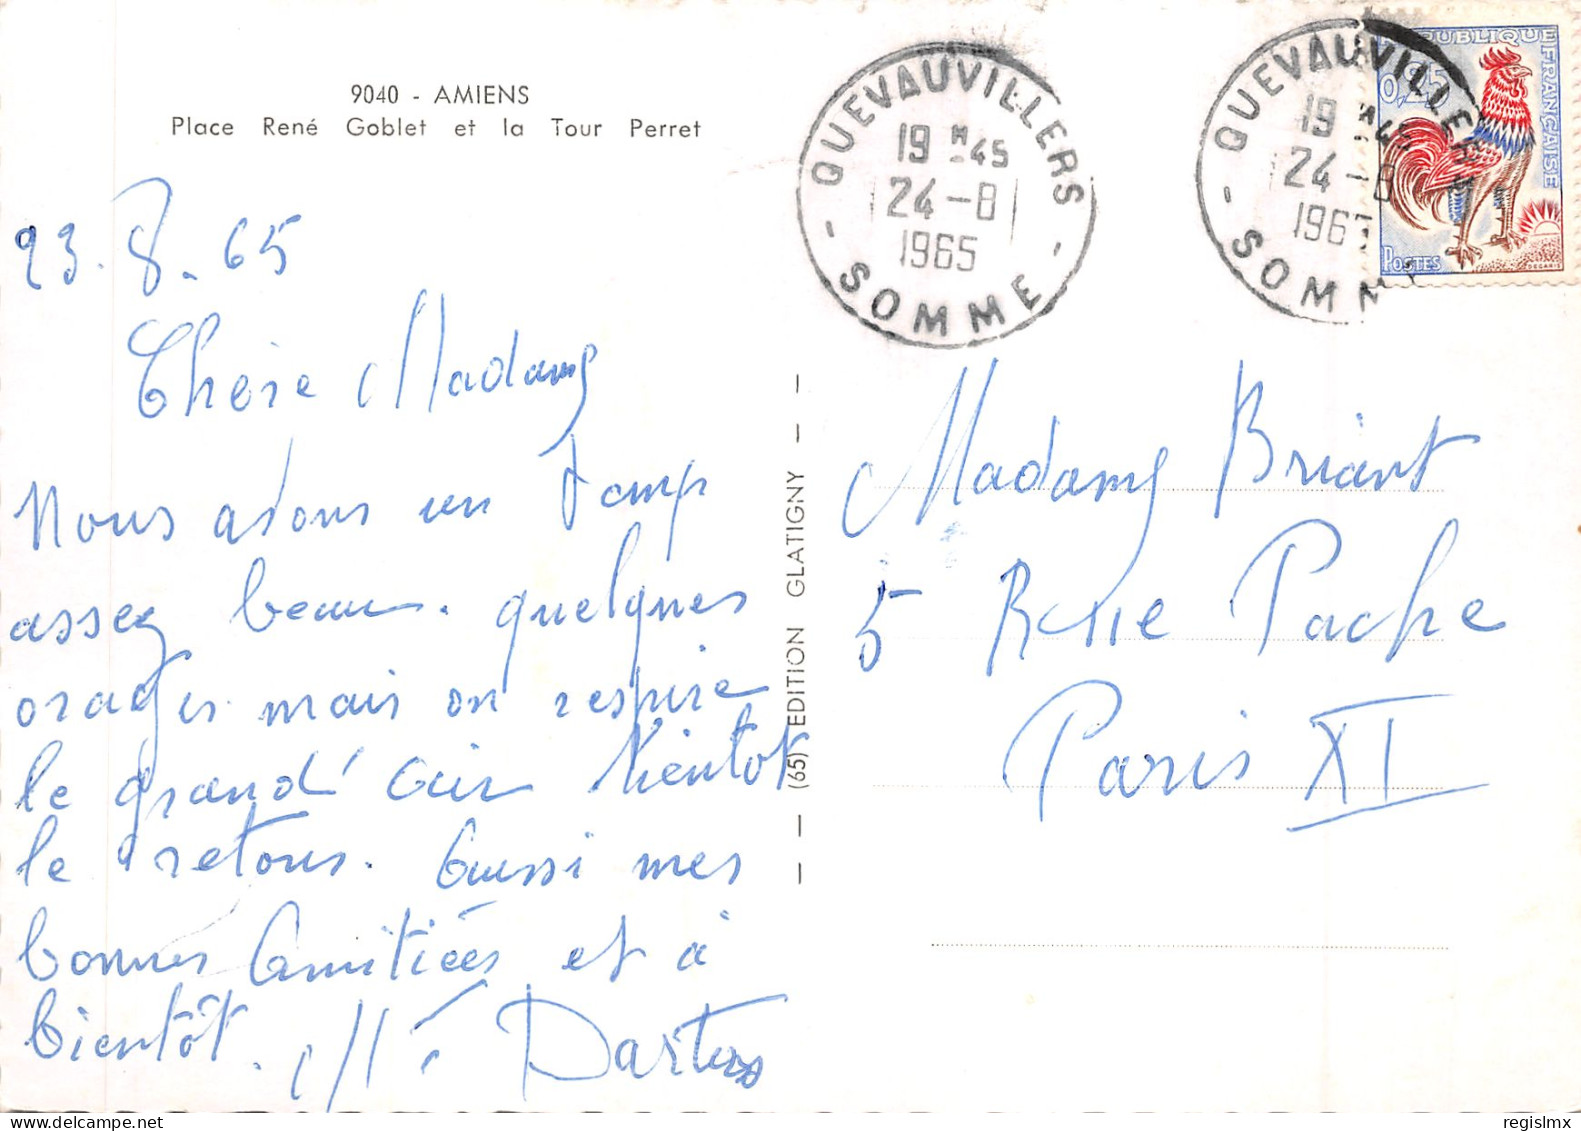 9040 - AMIENS
Place René Goblet et la Tour Perret
23.8.65
Chère Madame
Nous avons un temps
assez beau. quelques
orages mais on respire
le grand air bientot
le retour. Aussi mes
bonnes Amitiées et à
bientôt.
(65) EDITION GLATIGNY
QUEVAUVILLERS
19 H 45
24-8
1965
SOMME
QUEVAUVILLERS
19 H 45
24-8
1965
SOMME
REPUBLIQUE FRANÇAISE
0,25
POSTES
DECARIS
Madame Briant
5 Rue Pache
Paris XI
regislmx